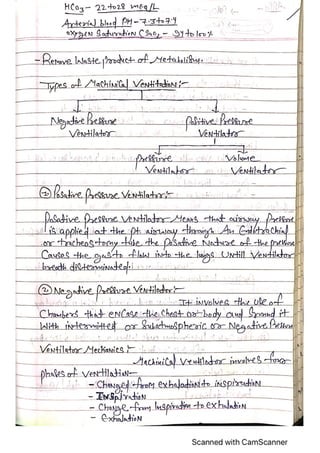 HCO3 - 22 to 28 mEq/L
Arterial blood PH - 7.3 to 7.4
oxygen Saturation CSaO2 - 94 to 100%
- Remove Waste product of Metabolism.
Types of Machinical Ventilation:-
Negative Pressure Positive Pressure
Ventilator Ventilator
Pressure Volume
Ventilator Ventilator
① Positive Pressure Ventilator:-
Positive Pressure Ventilator Means that airway Pressure
is applied at the pt airway through An Endotrachial
or tracheostomy tube the positive Nature of the pressure
Causes the gas to flow into the lungs Untill Ventilator
breath is terminated.
② Negative Pressure Ventilator:-
It involves the use of
Chambers that encase the chest or body and Sround it
With intermitted or Subatmospheric or Negative Pressure
Ventilator Mechanics:-
Machinical Ventilator involves four
phases of Ventilation-
- Changed from exhalation to inspiration
- Inspiration
- Change from Inspiration to exhalation
- Exhalation
Scanned with CamScanner